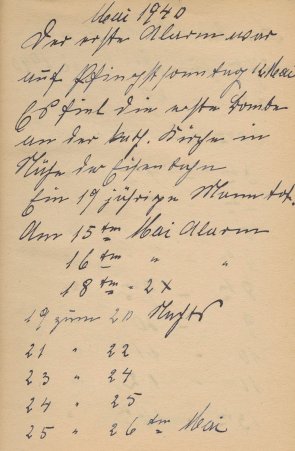 Mai 1940
Der erste Alarm war
auf Pfingstsonntag 12 Mai
Es fiel die erste Bombe
an der kath. Kirche in
Nähe der Eisenbahn
Ein 19 jähriger Mann tot.
Am 15 tn Mai Alarm
16 tn " "
18 tn - 2 X
19 zum 20 Nachts
21 " 22
23 " 24
24 " 25
25 " 26 tn Mai